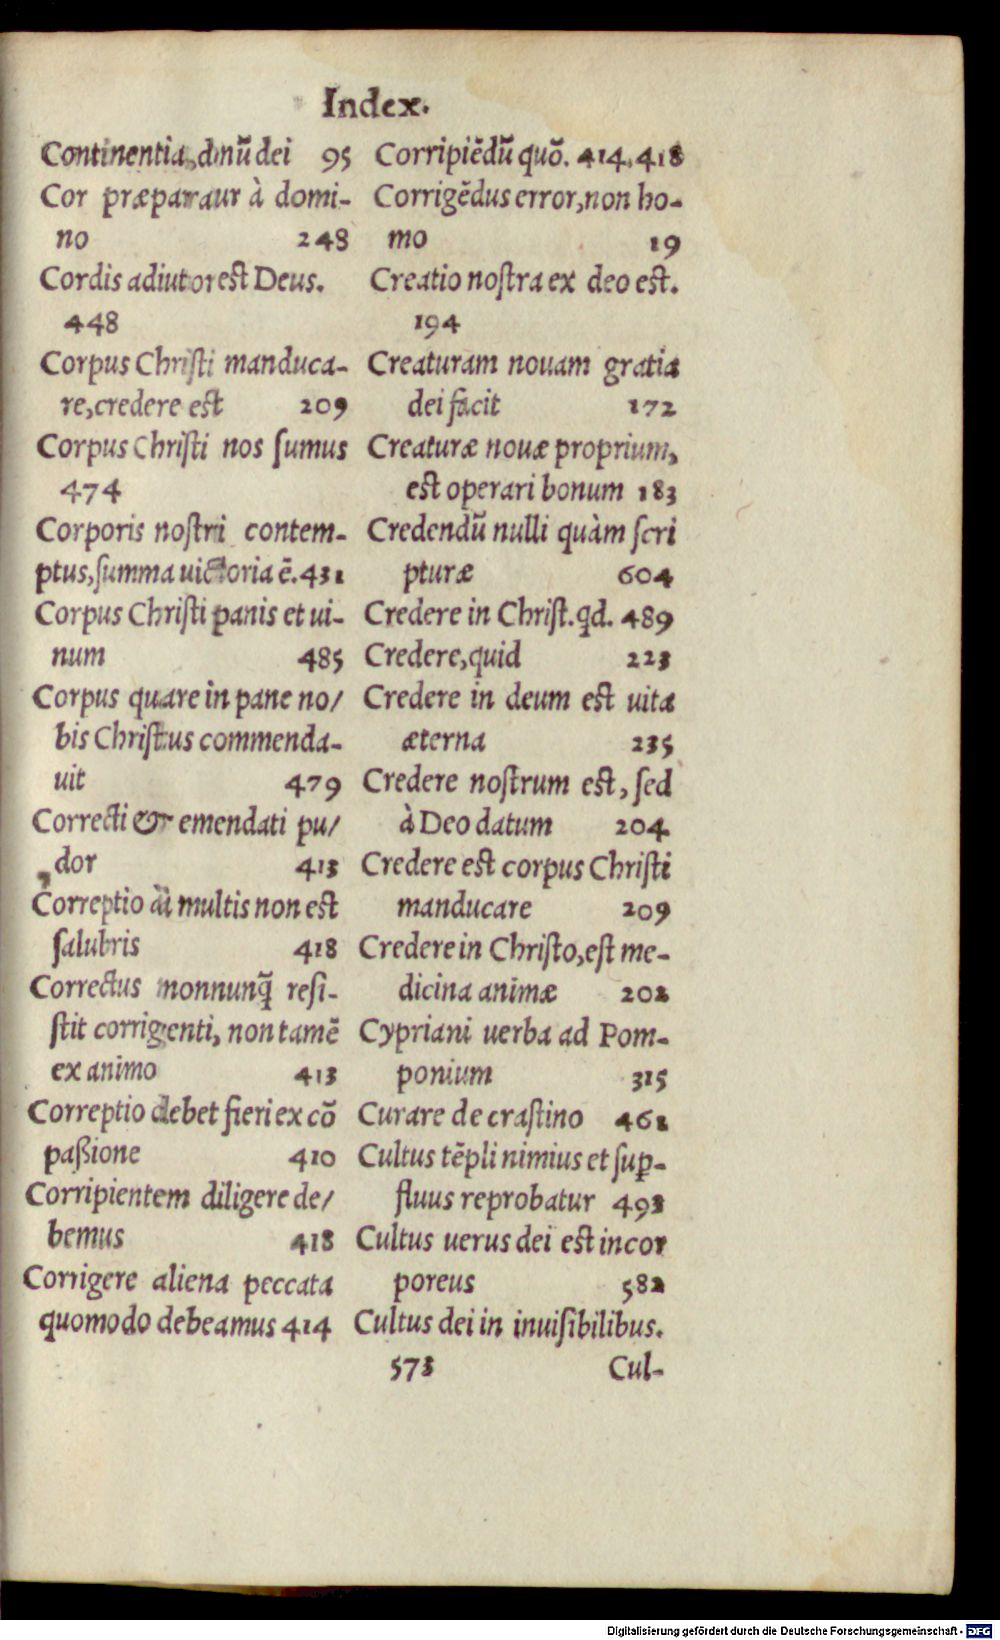 Index.
Continentia, donū dei 95
Cor præparaur à domi-
no 248
Cordis adiutor est Deus.
448
Corpus Christi manduca-
re, credere est 209
Corpus Christi nos sumus
474
Corporis nostri contem-
ptus, summa uictoria ē. 431
Corpus Christi panis et ui-
num 485
Corpus quare in pane no/
bis Christus commenda-
uit 479
Correcti & emendati pu/
dor 413
Correptio multis non est
salubris 418
Correctus nonnunq̃ resi-
stit corrigenti, non tamē
ex animo 413
Correptio debet fieri ex cō
paßione 410
Corripientem diligere de/
bemus 418
Corrigere aliena peccata
quomodo debeamus 414
Corripiēdū quō. 414, 418
Corrigēdus error, non ho-
mo 19
Creatio nostra ex deo est.
194
Creaturam nouam gratia
dei facit 172
Creaturæ nouæ proprium,
est operari bonum 183
Credendū nulli quàm scri
pturæ 604
Credere in Christ. qd. 489
Credere, quid 223
Credere in deum est uita
æterna 235
Credere nostrum est, sed
à Deo datum 204
Credere est corpus Christi
manducare 209
Credere in Christo, est me-
dicina animæ 202
Cypriani uerba ad Pom-
ponium 315
Curare de crastino 461
Cultus tēpli nimius et sup-
fluus reprobatur 493
Cultus uerus dei est incor
poreus 582
Cultus dei in inuisibilibus.
573 Cul-
Digitalisierung gefördert durch die Deutsche Forschungsgemeinschaft - DFG